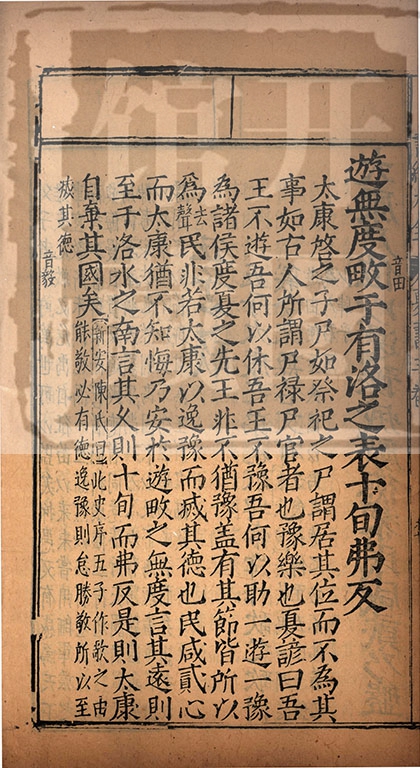 音田
遊無度畋于有洛之表十旬弗反
太康啓之子尸如祭祀之尸謂居其位而不為其
事如古人所謂尸祿尸官者也豫樂也夏諺曰吾
王不遊吾何以休吾王不豫吾何以助一遊一豫
為諸侯度夏之先王非不猶豫盖有其節皆所以
為去聲民非若太康以逸豫而㓕其德也民咸貳心
而太康猶不知悔乃安於遊畋之無度言其遠則
至于洛水之南言其久則十旬而弗反是則太康
自棄其國矣新安陳氏曰此史序五子作歌之由能敬必有德逸豫則怠勝敬所以至
㓕其德
音毅